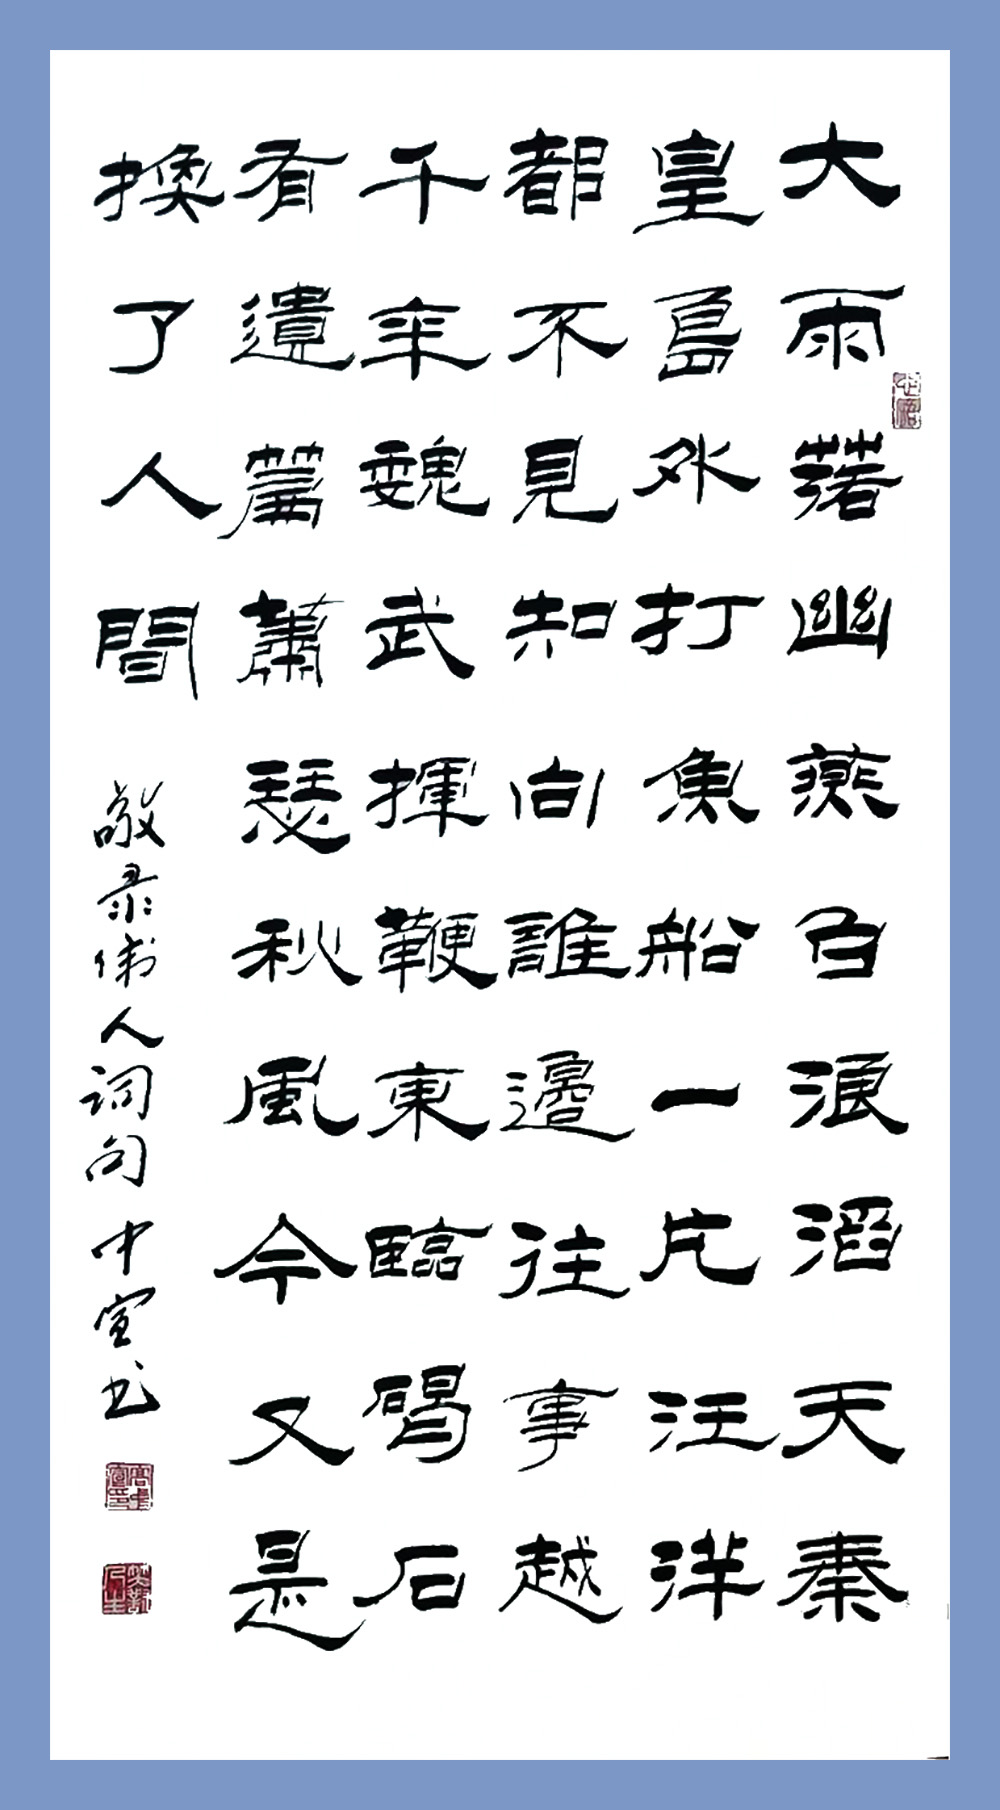 大雨落幽燕白浪滔天秦
皇島外打魚船一片汪洋
都不見知向誰邊往事越
千年魏武揮鞭東臨碣石
有遺篇蕭瑟秋風今又是
換了人間
敬录伟人词句中宣书